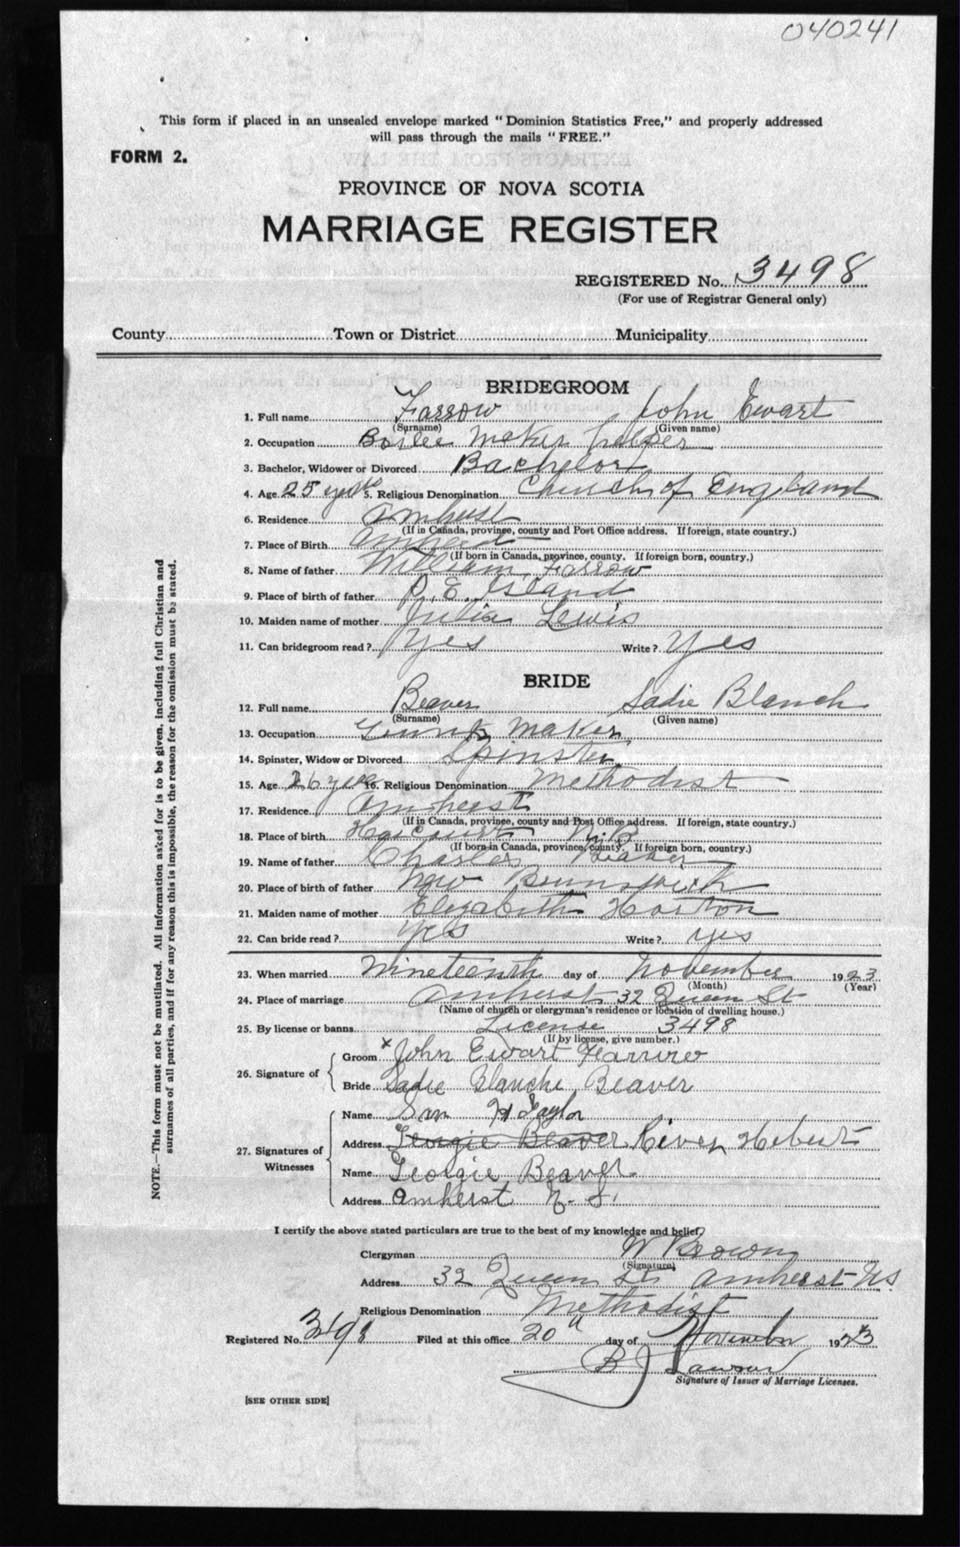 040241
This form if placed in an unsealed envelope marked "Dominion Statistics Free," and properly addressed
will pass through the mails "FREE."
FORM 2.
PROVINCE OF NOVA SCOTIA
MARRIAGE REGISTER
REGISTERED No. 3498
(For use of Registrar General only)
County Town or District Municipality
BRIDEGROOM
1. Full name Farrow John Ewart
(Surname) (Given name)
2. Occupation Boiler Maker helper
3. Bachelor, Widower or Divorced Bachelor
4. Age 25 years 5. Religious Denomination Church of England
6. Residence Amherst
(If in Canada, province, county and Post Office address. If foreign, state country.)
7. Place of Birth Amherst
(If born in Canada, province, county. If foreign born, country.)
8. Name of father William Farrow
9. Place of birth of father P. E. Island
10. Maiden name of mother Julia Lewis
11. Can bridegroom read? Yes Write? Yes
BRIDE
12. Full name Beaver Sadie Blanch
(Surname) (Given name)
13. Occupation Trunk Maker
14. Spinster, Widow or Divorced Spinster
15. Age 26 years 16. Religious Denomination Methodist
17. Residence Amherst
(If in Canada, province, county and Post Office address. If foreign, state country.)
18. Place of birth Harcourt N.B
(If born in Canada, province, county. If foreign born, country.)
19. Name of father Charles Beaver
20. Place of birth of father New Brunswick
21. Maiden name of mother Elizabeth Horton
22. Can bride read? yes Write? yes
23. When married Nineteenth day of November 1923
(Month) (Year)
24. Place of marriage Amherst 32 Queen St
(Name of church or clergyman's residence or location of dwelling house.)
25. By license or banns License 3498
(If by license, give number.)
26. Signature of Groom x John Ewart Farrow
Bride Sadie Blanche Beaver
27. Signatures of Witnesses Name Sam H Taylor
Address Georgie Beaver River Hebert
Name Georgie Beaver
Address Amherst N. S.
I certify the above stated particulars are true to the best of my knowledge and belief
Clergyman W Brown
(Signature)
Address 32 Queen St Amherst NS
Religious Denomination Methodist
Registered No. 3498 Filed at this office 20th day of November 1923
B J Lawson
Signature of Issuer of Marriage Licenses.
[SEE OTHER SIDE]
NOTE.—This form must not be mutilated. All information asked for is to be given, including full Christian and
surnames of all parties, and if for any reason this is impossible, the reason for the omission must be stated.